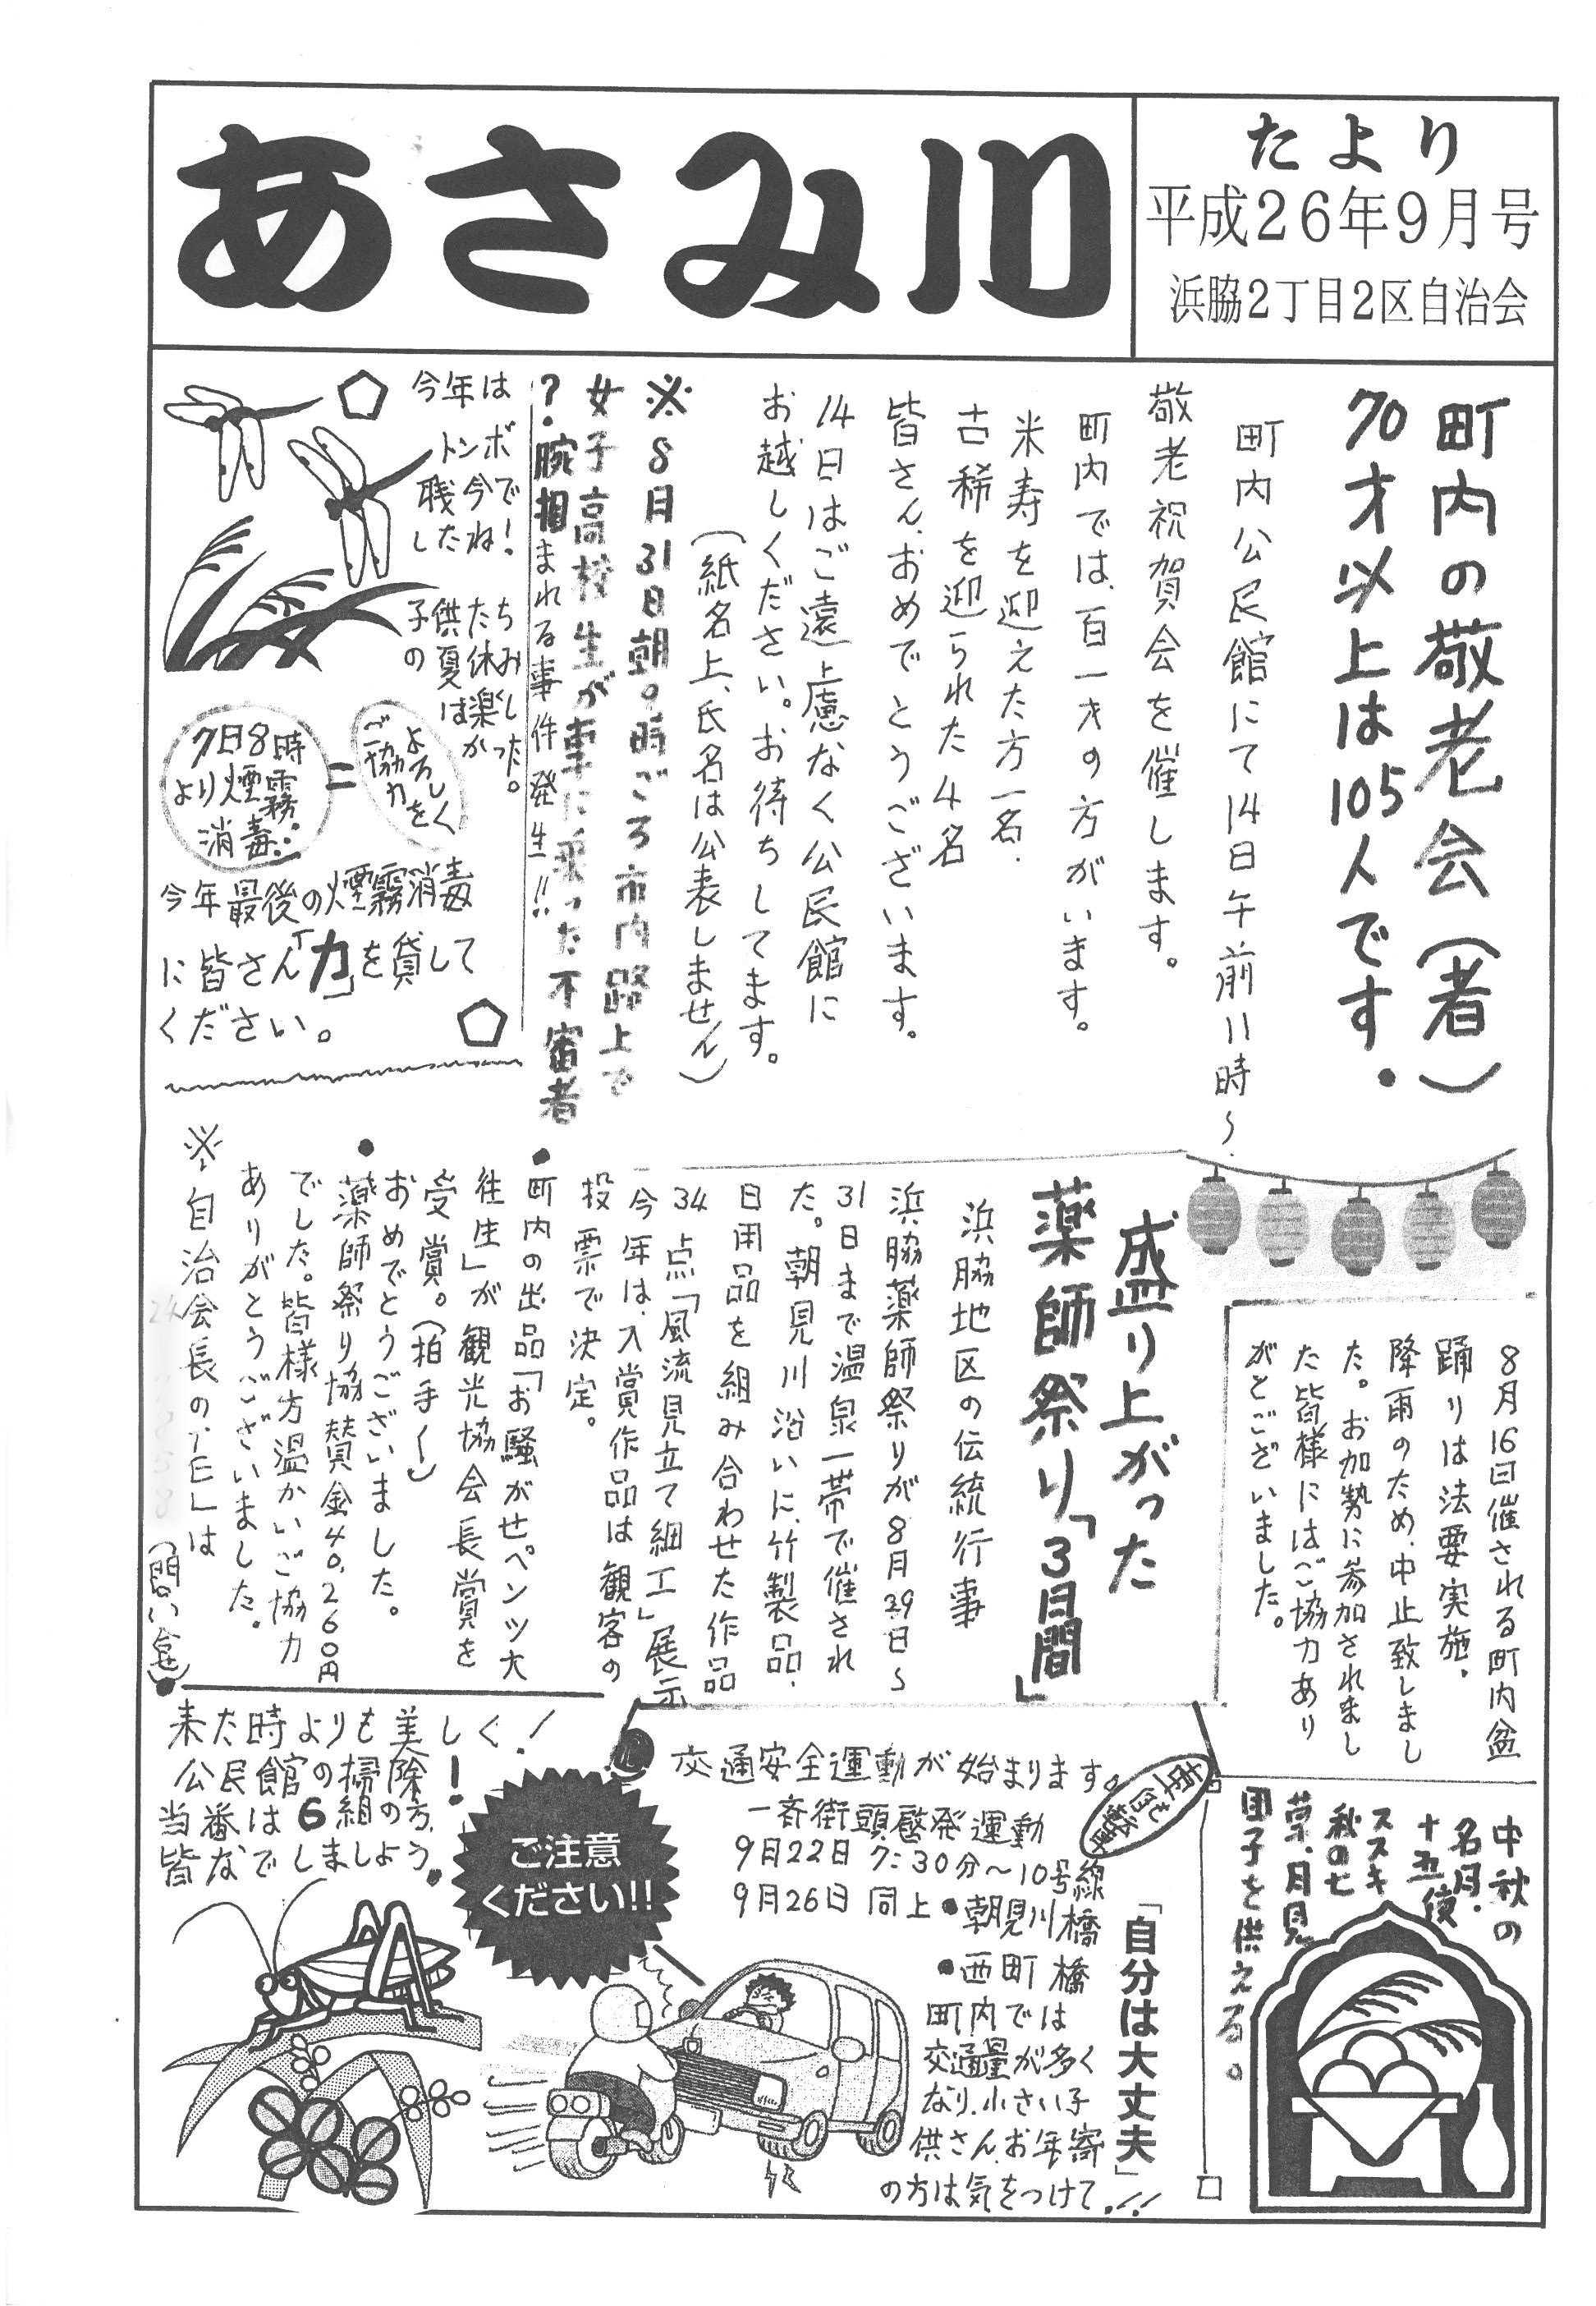 あさみ川
たより
平成26年9月号
浜脇2丁目2区自治会
町内の敬老会(者)
70才以上は105人です。
町内公民館にて14日午前11時〜
敬老祝賀会を催します。
町内では、百一才の方がいます。
米寿を迎えた方一名.
古稀を迎られた4名
皆さん、おめでとうございます。
14日はご遠慮なく公民館に
お越しください。お待ちしてます。
(紙名上、氏名は公表しません)
※8月31日朝9時ごろ市内路上で
女子高校生が車に乗った不審者
?腕掴まれる事件発生!!
今年は
トンボ
残
今で
した
ね!
子供たち
の夏休み
は楽し
かった。
7日8時
より煙霧
消毒:
=
ご協力を
よろしく
今年最後の煙霧消毒
に皆さん「力」を貸して
ください。
8月16日催される町内盆
踊りは法要実施.
降雨のため、中止致しまし
た。お加勢に参加されまし
た皆様にはご協力あり
がとございました。
盛り上がった
薬師祭り「3日間」
浜脇地区の伝統行事
浜脇薬師祭りが8月29日〜
31日まで温泉一帯で催され
た。朝見川沿いに、竹製品、
日用品を組み合わせた作品
34点「風流見立て細工」展示
今年は、入賞作品は観客の
投票で決定。
●町内の出品「お騒がせペンツ大
往生」が観光協会長賞を
受賞。(拍手〜)
おめでとうございました。
●薬師祭り協賛金40,260円
でした。皆様方温かいご協力
ありがとうございました。
※自治会長の、TELは
24
(問い合せ)
来た時よりも美しく!
公民館の掃除!
当番は6組の方、
皆なでしましょう。
ご注意
ください!!
交通安全運動が始まります。
一斉街頭啓発運動
9月22日 7:30分〜10号線
9月26日 同上●朝見川橋
●西町橋
町内では
交通量が多く
なり、小さい子
供さん、お年寄
の方は気をつけて!!
「自分は大丈夫」
中秋の
名月.
十五夜
ススキ
秋の七
草、月見
団子を供える。